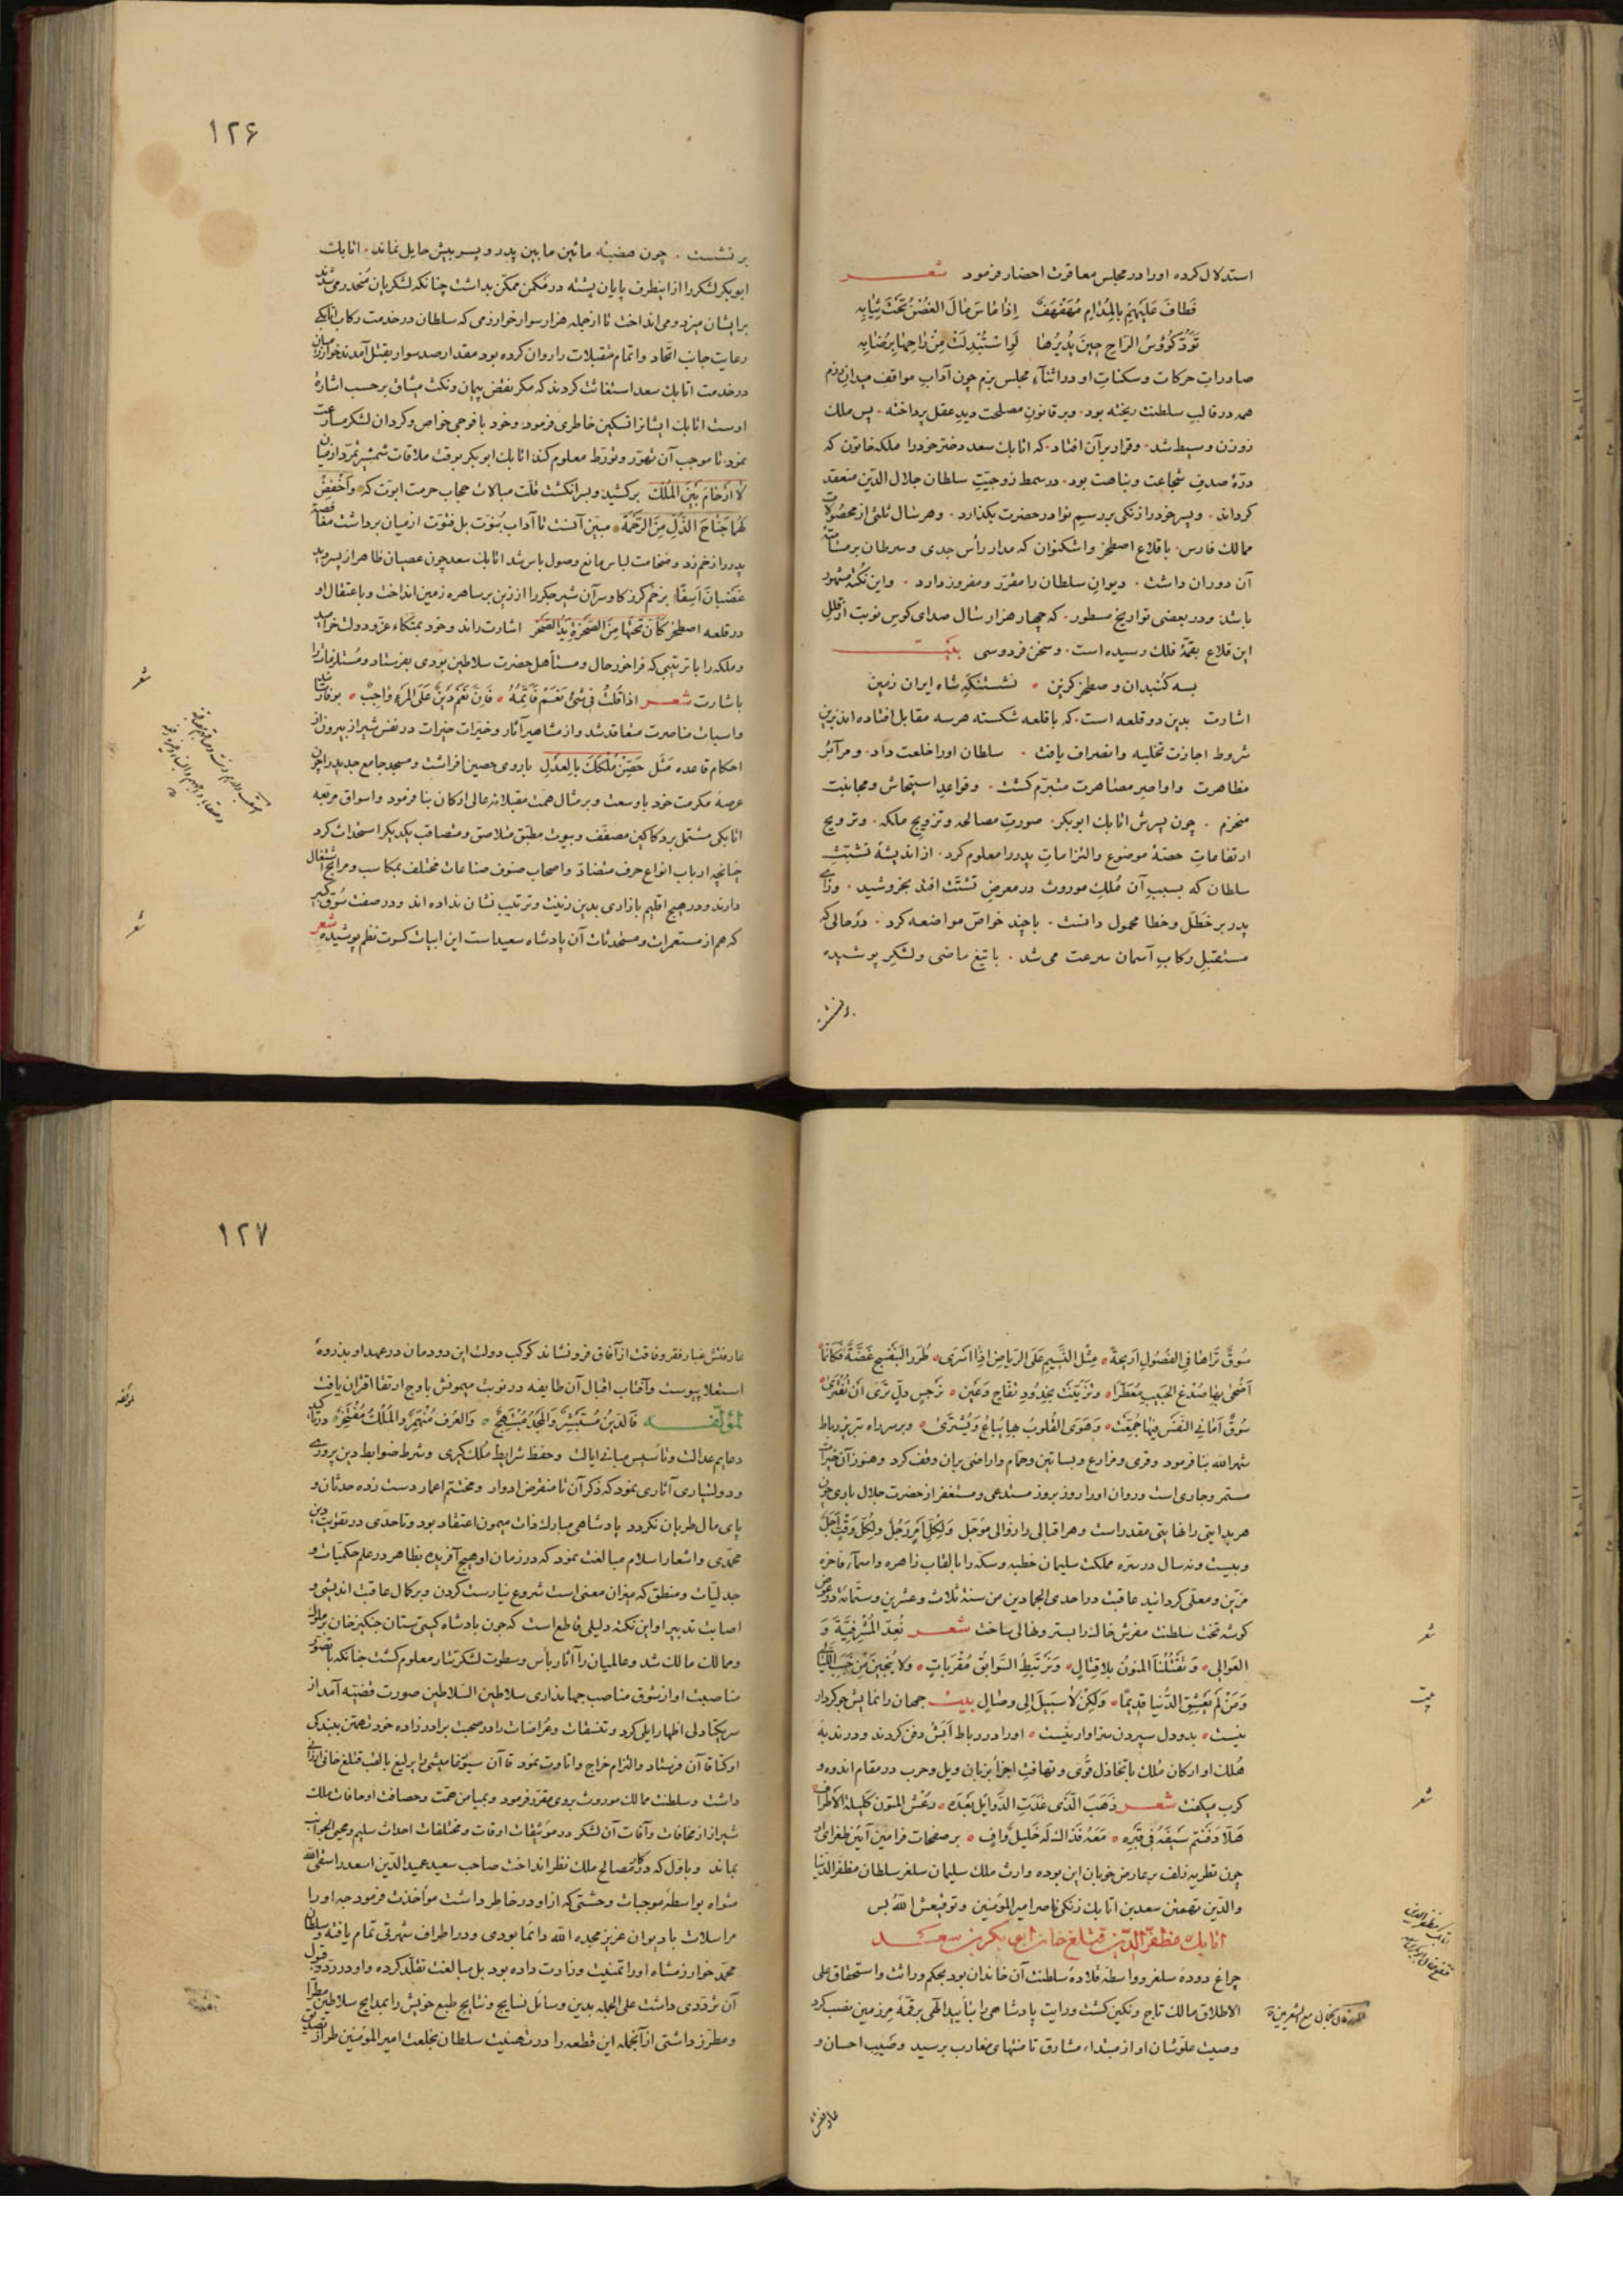 استدلال کرده او را در مجلس معاقرت احضار فرمود شعر
فَطافَ عَلَیهِم بِالمُدامِ مُهَفهَفٌ اِذا ماسَ خالَ الغُصنُ تَحتَ ثِیابِهِ
تَوَدُّ کُؤُوسُ الرّاحِ حینَ یُدیرُها لَوِ استُبدِلَت مِن راحِها بِرُضابِه
صادرات حرکات و سکنات او در اثناء مجلس بزم چون آداب مواقف میدان رزم
همه در قالب سلطنت ریخته بود. و بر قانون مصلحت دید عقل پرداخته. پس ملک
زوزن وسیط شد. و قرار بر آن افتاد. که اتابک سعد دختر خود را ملکه خاتون که
درّهٔ صدف شجاعت و نباهت بود. در سمط زوجیّت سلطان جلال الدّین منعقد
کرداند. و پسر خود را زنکی بر رسم نوا در حضرت بکذارد. و هر سال ثلثی از محصولات
ممالک فارس. با قلاع اصطخر و اشکنوان که مدار رأس جدی و سرطان بر مسامتهٔ
آن دوران داشت. دیوان سلطان را مقرّر و مفروز دارد. و این نکته مشهود
باشد و در بعضی تواریخ مسطور. که چهار هزار سال صدای کوس نوبت از قلل
این قلاع بقمّهٔ فلک رسیده است. و سخن فردوسی بیت
بسه کنبدان و صطخر کزین . نشستنکه شاه ایران زمین
اشارت بدین دو قلعه است. که با قلعه شکسته هر سه مقابل افتاده اند برین
شروط اجازت تخلیه و انصراف یافت . سلطان او را خلعت داد. و مرآئر
مظاهرت و اواصر مصاهرت مبرم کشت. و قواعد استیحاش و مجانبت
منخرم . چون پسرش اتابک ابوبکر. صورت مصالحه و تزویج ملکه. و ترویج
ارتفامات حصّهٔ موضوع و التزامات پدر را معلوم کرد. از اندیشهٔ تشبّث
سلطان که بسبب آن مُلک موروث در معرض تشتّت افتد بخروشید. و رای
پدر بر خَطَل و خطا محمول دانست. با چند خواصّ مواضعه کرد. در حالی که
مستقبل رکاب آسمان سرعت می شد. با تیغ ماضی و لشکر پوشیده
برنشست
۱۲۶
بر نشست . چون هضبه مائین مابین پدر و پسر بیش حایل نماند. اتابک
ابوبکر لشکر را از اینطرف پایان پشته در مکمن ممکّن بداشت چنانکه لشکریان منحدر می شدند
برایشان میزد و می انداخت تا از جمله هزار سوار خوارزمی که سلطان در خدمت رکاب اتابکی
رعایت جانب اتّحاد و اتمام متقبلات را روان کرده بود مقدار صد سوار بقتل آمدند خوارزمیان
در خدمت اتابک سعد استغاثت کردند که مکر نقض پیمان و نکث میثاق بر حسب اشارهٔ
اوست اتابک ایشانرا تسکین خاطری فرمود و خود با فوجی خواص و کردان لشکر مسارعت
نمود تا موجب آن تهوّر و تورّط معلوم کند اتابک ابوبکر بوقت ملاقات شمشیر تمرّد از نیام
لا اَرحامَ بَینَ المُلکِ برکشید و بسرانکشت قلّت مبالات حجاب حرمت ابوّت که وَاخفِض
لَهُما جَناحَ الذُّلِّ مِنَ الرَّحمَة مبیّن آنست تا آداب بُنوّت بل فتوّت از میان برداشت مغافصة
پدر را زخم زد و ضخامت لباس مانع وصول باس شد اتابک سعد چون عصیان ظاهر از پسر دید
غَضبانَ اَسِفًا بزخم کرز کاوسر آن شیر جکر را از زین بر ساهره زمین انداخت و باعتقال او
در قلعه اصطخر کَاَنَّ نَحتَها مِنَ الصَّخرَةِ یَدُ الصَّخر اشارت راند و خود بمتّکاء عزّ و دولت خرامید
و ملکه را با ترتیبی که فراخور حال و مستأهل حضرت سلاطین بودی بفرستاد و مستلزمات را
باشارت شعر اذا قُلتَ فی شَیءٍ نَعَم فَاَتِمَّهُ ۰ فَاِنَّ نَعَم دَینٌ عَلَی المَرءِ واجِبٌ ۰ بوفا رسانید
و اسباب مناصرت متعاقد شد و از مشاهیر آثار و خیرات حیّرات در نفس شیراز بیرون از
احکام قاعده مَثَل حَصِّن مُلکَکَ بِالعَدل باروی حصین افراشت و مسجد جامع جدید را چون
عرصهٔ مکرمت خود با وسعت و بر مثال همّت مقبلانه عالی ارکان بنا فرمود و اسواق مربّعه
اتابکی مشتمل بر دکاکین مصفّف و بیوت مطبّق متلاصق و متصاقب یکدیکر استحداث کرد
چنانچه ارباب انواع حرف متضادّ و اصحاب صنوف صناعات مختلف بمکاسب و مرابح اشتغال
دارند و در هیچ اقلیم بازاری بدین زینت و ترتیب نشان نداده اند و در صفت سوق کبیر
که هم از مستعمرات و مستحدثات آن پادشاه سعید است این ابیات کسوت نظم پوشیده شعر
شعر
شعر
سُوقٌ تَراها فِی الفُصُولِ اَریجَةً ۰ مِثلَ النَّسیمِ عَلَی الرِّیاضِ اِذا اسرَی ۰ طُرَرُ البَنَفسَجِ غَضَّةً فَکَاَنَّها
اَضحی بِها صُدغُ الحَبیبِ مُعَطَّرا ۰ وَتَزَیَّنَت بِخُدُودِ تُفّاحٍ وَعَین ۰ نَرجِسٍ دلٍّ تَری اَن تُفتَری
سُوقٌ اَمانِی النَّفسِ فیها جُمِّعَت ۰ وَهَوَی القُلُوبِ بِها یُباعُ وَیُشتَری ۰ و بر سر راه تبریز رباط
شهر الله بنا فرمود و قری و مزارع و بساتین و حمّام و اراضی بران وقف کرد و هنوز آن خیرات
مستمر و جاری است و روان او را روز بروز مستدعی و مستغفر از حضرت جلال باری چون
هر بدایتی را نهایتی مقدر است و هر اقبالی را زوالی مؤجّل وَلِکُلِّ اَمرٍ رَجُلٌ ولِکُلِّ وَقتٍ اَجَل
و بیست و نه سال در سرّه مملکت سلیمان خطبه و سکّه را بالقاب زاهره و اسمآء فاخره
مزیّن و معلّی کردانید عاقبت در احدی الجمادین من سنة ثلاث و عشرین و ستّمائة در عوض
کوشهٔ تخت سلطنت مفرش خاک را بستر و نهالی ساخت شعر نُعِدُّ المَشرَفِیَّةَ وَ
العَوالِی ۰ وَتَقتُلُنَا المَنونُ بِلا قِتالٍ ۰ وَنَرتَبِطُ السَّوابِقَ مُقرَباتٍ ۰ وَلا یُنجینَ مِن خَبَبِ اللَّیالی
وَمَن لَم یَعشَقِ الدُّنیا قَدیمًا ۰ وَلکِن لا سَبیلَ اِلی وِصالٍ بیت جهان را نمایش چو کردار
نیست ۰ بدو دل سپردن سزاوار نیست ۰ او را در رباط اَبَش دفن کردند و در ندبهٔ
هُلک او ارکان مُلک با تخاذل قُوی و تهافت اجزا بزبان ویل و حرب در مقام اندوه و
کرب میکفت شعر ذَهَبَ الّذی غَدَتِ الذَّوابِلُ بَعدَه ۰ رَعشَ المُتونِ کَلیلَة الاَطراف
هَلّا دَفَنتُم سَیفَهُ فی قَبرِه ۰ مَعَهُ فَذاکَ لَهُ خَلیلٌ وافٍ ۰ بر صفحات فرامین آیین طغرای او
چون تطریه زلف بر عارض خوبان این بوده وارث ملک سلیمان سلغر سلطان مظفر الدّنیا
والدّین تهمتن سعد بن اتابک زنکی ناصر امیر المؤمنین و توقیعش الله بس
اتابک مظفّر الدّین قتلغ خان ابی بکر بن سعد
چراغ دودهٔ سلغر و واسطهٔ قلادهٔ سلطنت آن خاندان بود بحکم وراثت و استحقاق علی
الاطلاق مالک تاج و نکین کشت و رایت پادشاهی را بتأیید الهی بر قمّهٔ مرزمین نصب کرد
و صیت علوّ شان او از مبتداء مشارق تا منتهای مغارب برسید و صَیّب احسان و
عارفتش
شعر
بیت
شعر
۱۲۷
عارفتش غبار فقر و فاقت از آفاق فرو نشاند کوکب دولت این دودمان در عهد او بذروهٔ
استعلا پیوست و آفتاب اقبال آن طایفه در نوبت میمونش باوج ارتقا اقتران یافت
لمؤلّفه فَالدّینُ مُستَبشِرٌ وَالمَجدُ مُبتَهِجٌ ۰ وَالعُرفُ مُنهَمِرٌ والمُلکُ مُفتَخِرٌ در تأکید
دعایم عدالت و تأسیس مبانی ایالت و حفظ شرایط مُلک کیری و شرط ضوابط دین پروری
و دولتیاری آثاری نمود که ذکر آن تا منقرض ادوار و مختتم اعمار دست زده حدثان و
پای مال طریان نکردد پادشاهی مبارک ذات میمون اعتقاد بود و تا حدّی در تقویت دین
محمّدی و اشعار اسلام مبالغت نمود که در زمان او هیچ آفریده بظاهر در علم حکمیّات و
جدلیّات و منطق که میزان معنی است شروع نیارست کردن و بر کمال عاقبت اندیشی و
اصابت تدبیر او این نکته دلیلی قاطع است که چون پادشاه کیتی ستان جنکیز خان بر ملوک
و ممالک مالک شد و عالمیان را آثار بأس و سطوت لشکر تتار معلوم کشت چنانکه با تصوّر
مناصبت او از تشوق مناصب جهانداری سلاطین السلاطین صورت قضیّه آمد از
سر یکتادلی اظهار ایلی کرد و تنسقات و عُراضات را در صحبت برادرزاده خود تهمتن ببندکی
اوکتا قاآن فرستاد و التزام خراج و اتاوت نمود قاآن سیورغامیشی را یرلیغ بالقب قتلغ خانی ارزانی
داشت و سلطنت ممالک موروث بروی مقرّر فرمود و بمیامن همّت و حصافت او حافات ملک
شیراز از مخافات و آفات آن لشکر در موثیقات اوقات و مختلفات احداث سلیم و محمی الجوانب
بماند و باوّل که در کار مصالح ملک نظر انداخت صاحب سعید عمید الدّین اسعد را سقی الله
مثواه بواسطهٔ موجبات وحشتی که از او در خاطر داشت مؤاخذت فرمود چه او را
مراسلات با دیوان عزیز مجده الله دائما بودی و در اطراف شهرتی تمام یافته و سلطان
محمّد خوارزمشاه او را تمنیت وزارت داده بود بل مبالغت تقلّد کرده و او در ردّ و قبول
آن تردّدی داشت علی الجمله بدین وسائل نسایج و نتایج طبع خویش را بمدایح سلاطین مطرّا
و مطرّز داشتی از آنجمله این قطعه را در تهنیت سلطان بخلعت امیر المؤمنین طراز تصدیق